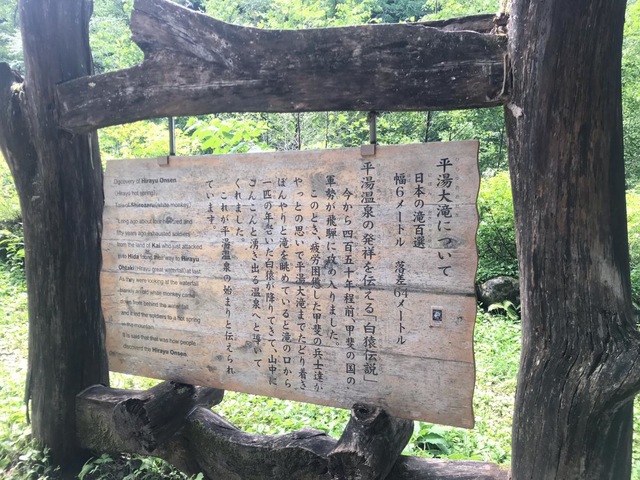 平湯大滝について
日本の滝百選
幅6メートル 落差64メートル
平湯温泉の発祥を伝える「白猿伝説」
今から四百五十年程前、甲斐の国の
軍勢が飛騨に攻め入りました。
このとき、疲労困憊した甲斐の兵士達が
やっとの思いで平湯大滝までたどり着き
ぼんやりと滝を眺めていると滝の口から
一匹の年老いた白猿が降りてきて、山中に
こんこんと湧き出る温泉へと導いて
くれました。
これが平湯温泉の始まりと伝えられ
ています。
Discovery of Hirayu Onsen
(Hirayu hot spring)
Tale of Shirozaru(white monkey)
Long ago about four hundred and
fifty years ago exhausted soldiers
from the land of Kai who just attacked
to Hida found their way to Hirayu
Ohtaki(Hirayu great waterfall) at last.
As they were looking at the waterfall
blankly an old white monkey came
down from behind the waterfall
and it led the soldiers to a hot spring
in the mountain.
It is said that this was how people
discoverd the Hirayu Onsen.